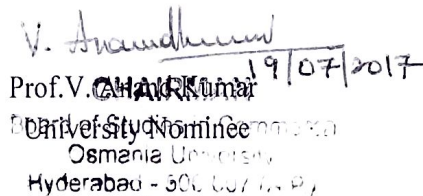 V. Anandkumar
19/07/2017
Prof.V. Anand Kumar
CHAIRMAN
University Nominee
Board of Studies in Commerce
Osmania University
Hyderabad - 500 007